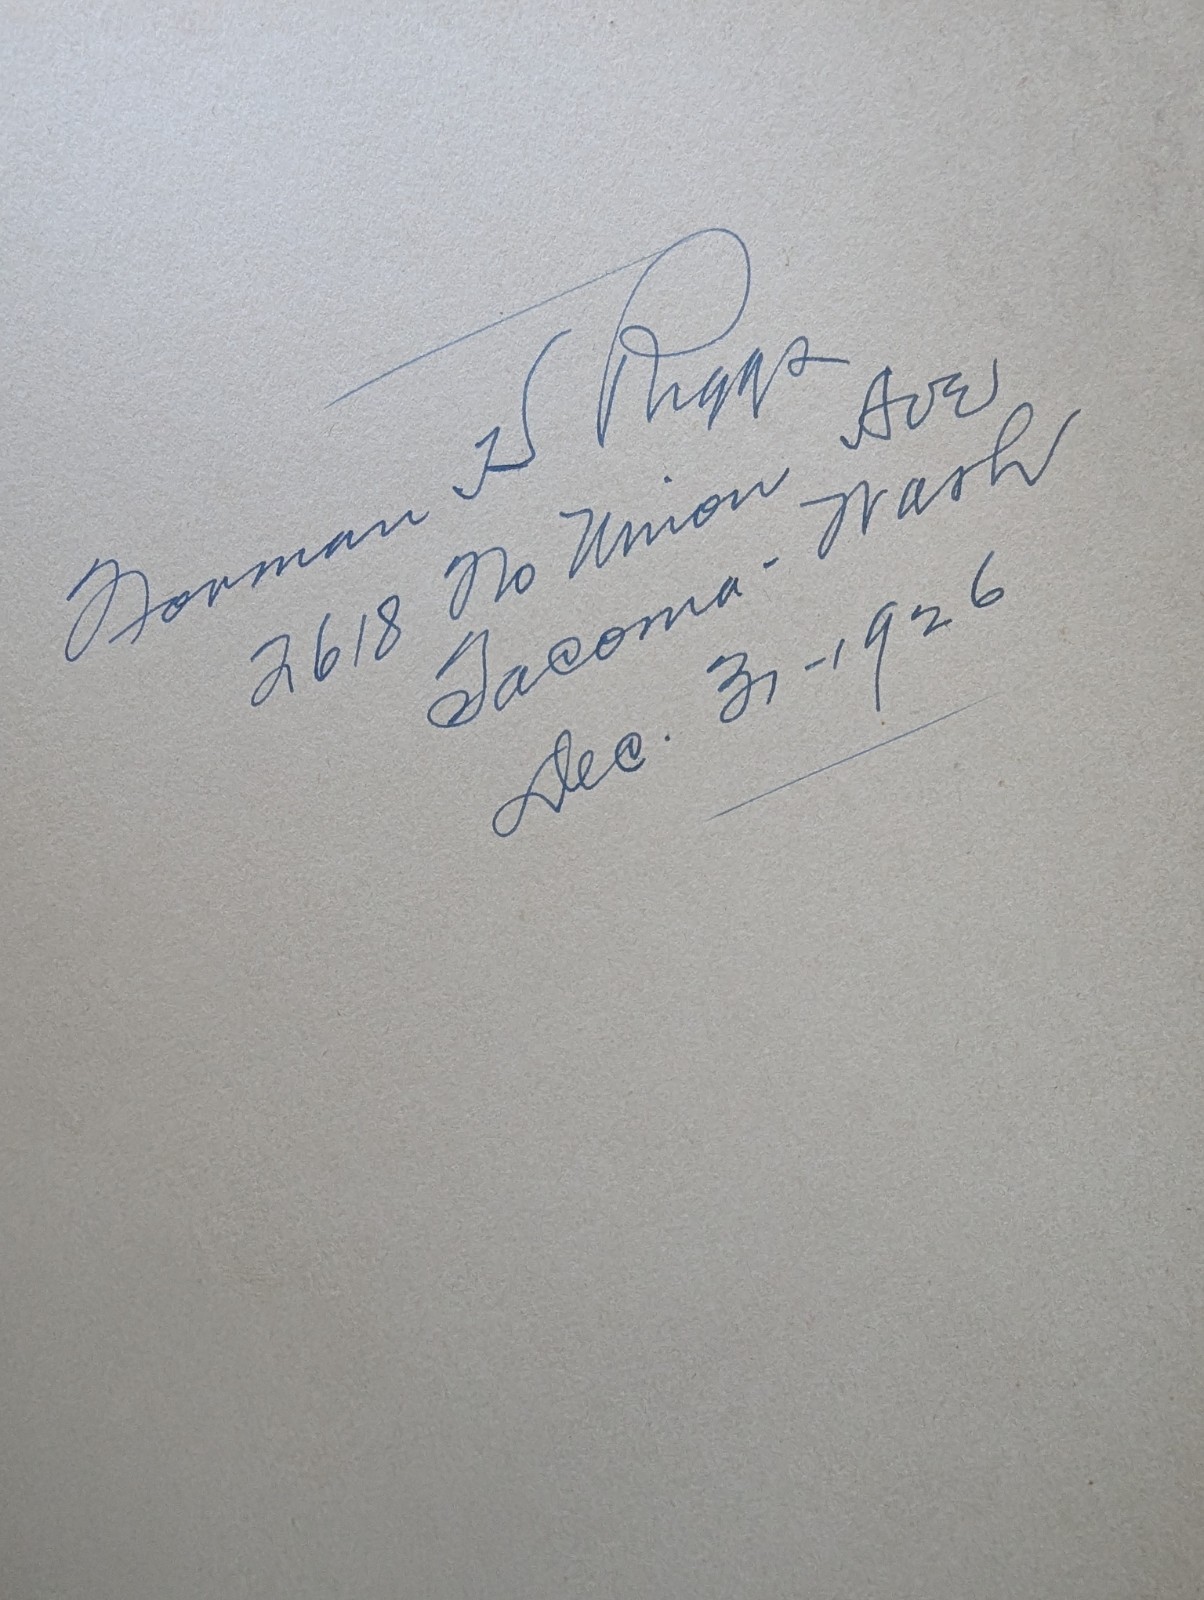 Norman H Riggs
2618 No Union Ave
Tacoma - Wash
Dec. 31 - 1926